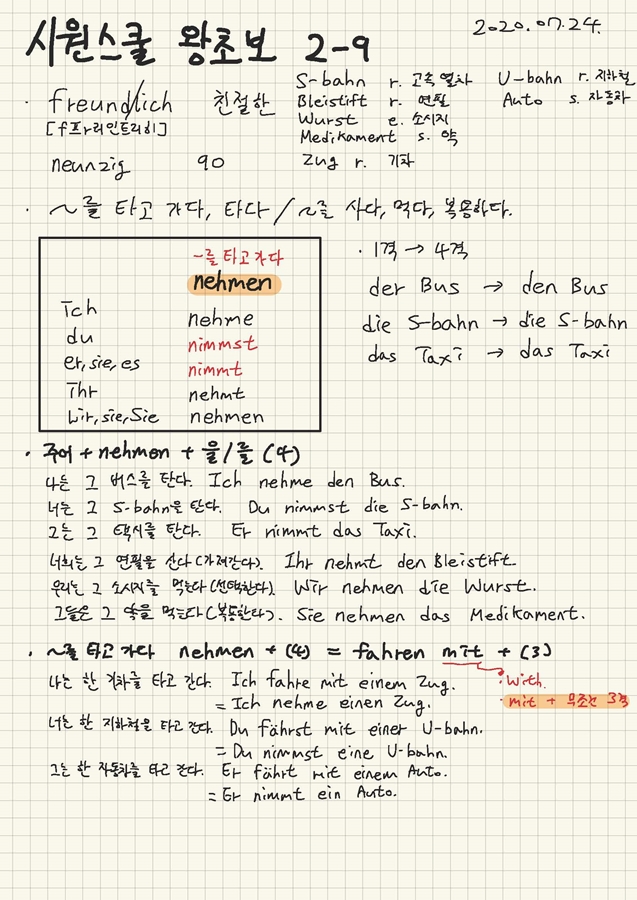 시원스쿨 왕초보 2-9
2020.07.24.
· freundlich 친절한
[f프라인트리히]
neunzig 90
S-bahn r. 고속열차
Bleistift r. 연필
Wurst e. 소시지
Medikament s. 약
Zug r. 기차
U-bahn r. 지하철
Auto s. 자동차
· ~를 타고 가다, 타다 / ~를 사다, 먹다, 복용하다.
~를 타고가다
nehmen
Ich nehme
du nimmst
er, sie, es nimmt
Ihr nehmt
Wir, sie, Sie nehmen
· 1격 → 4격
der Bus → den Bus
die S-bahn → die S-bahn
das Taxi → das Taxi
· 주어 + nehmen + 을/를 (4)
나는 그 버스를 탄다. Ich nehme den Bus.
너는 그 S-bahn을 탄다. Du nimmst die S-bahn.
그는 그 택시를 탄다. Er nimmt das Taxi.
너희는 그 연필을 산다(가져간다). Ihr nehmt den Bleistift.
우리는 그 소시지를 먹는다(선택한다). Wir nehmen die Wurst.
그들은 그 약을 먹는다(복용한다). Sie nehmen das Medikament.
· ~를 타고 가다 nehmen + (4) = fahren mit + (3)
· with.
· mit + 무조건 3격
나는 한 기차를 타고 간다. Ich fahre mit einem Zug.
= Ich nehme einen Zug.
너는 한 지하철을 타고 간다. Du fährst mit einer U-bahn.
= Du nimmst eine U-bahn.
그는 한 자동차를 타고 간다. Er fährt mit einem Auto.
= Er nimmt ein Auto.